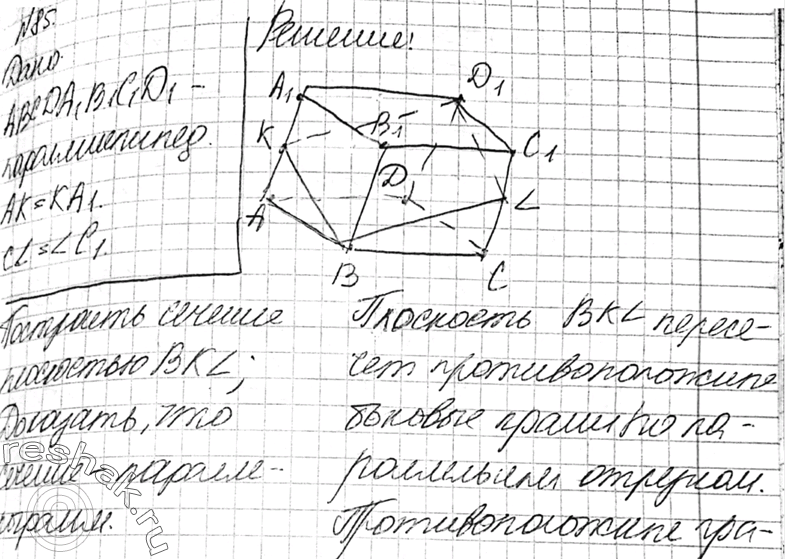 N85.
Дано
ABCDA₁B₁C₁D₁ –
параллелепипед.
AK = KA₁.
CL = LC₁.
Построить сечение
плоскостью BKL;
Доказать, что
сечение – паралле-
лограмм.
Решение:
A₁
D₁
K
B₁
C₁
D
A
L
B
C
Плоскость BKL пересе-
чет противоположные
боковые грани по па-
раллельным отрезкам.
Противоположные гра-
reshak.ru